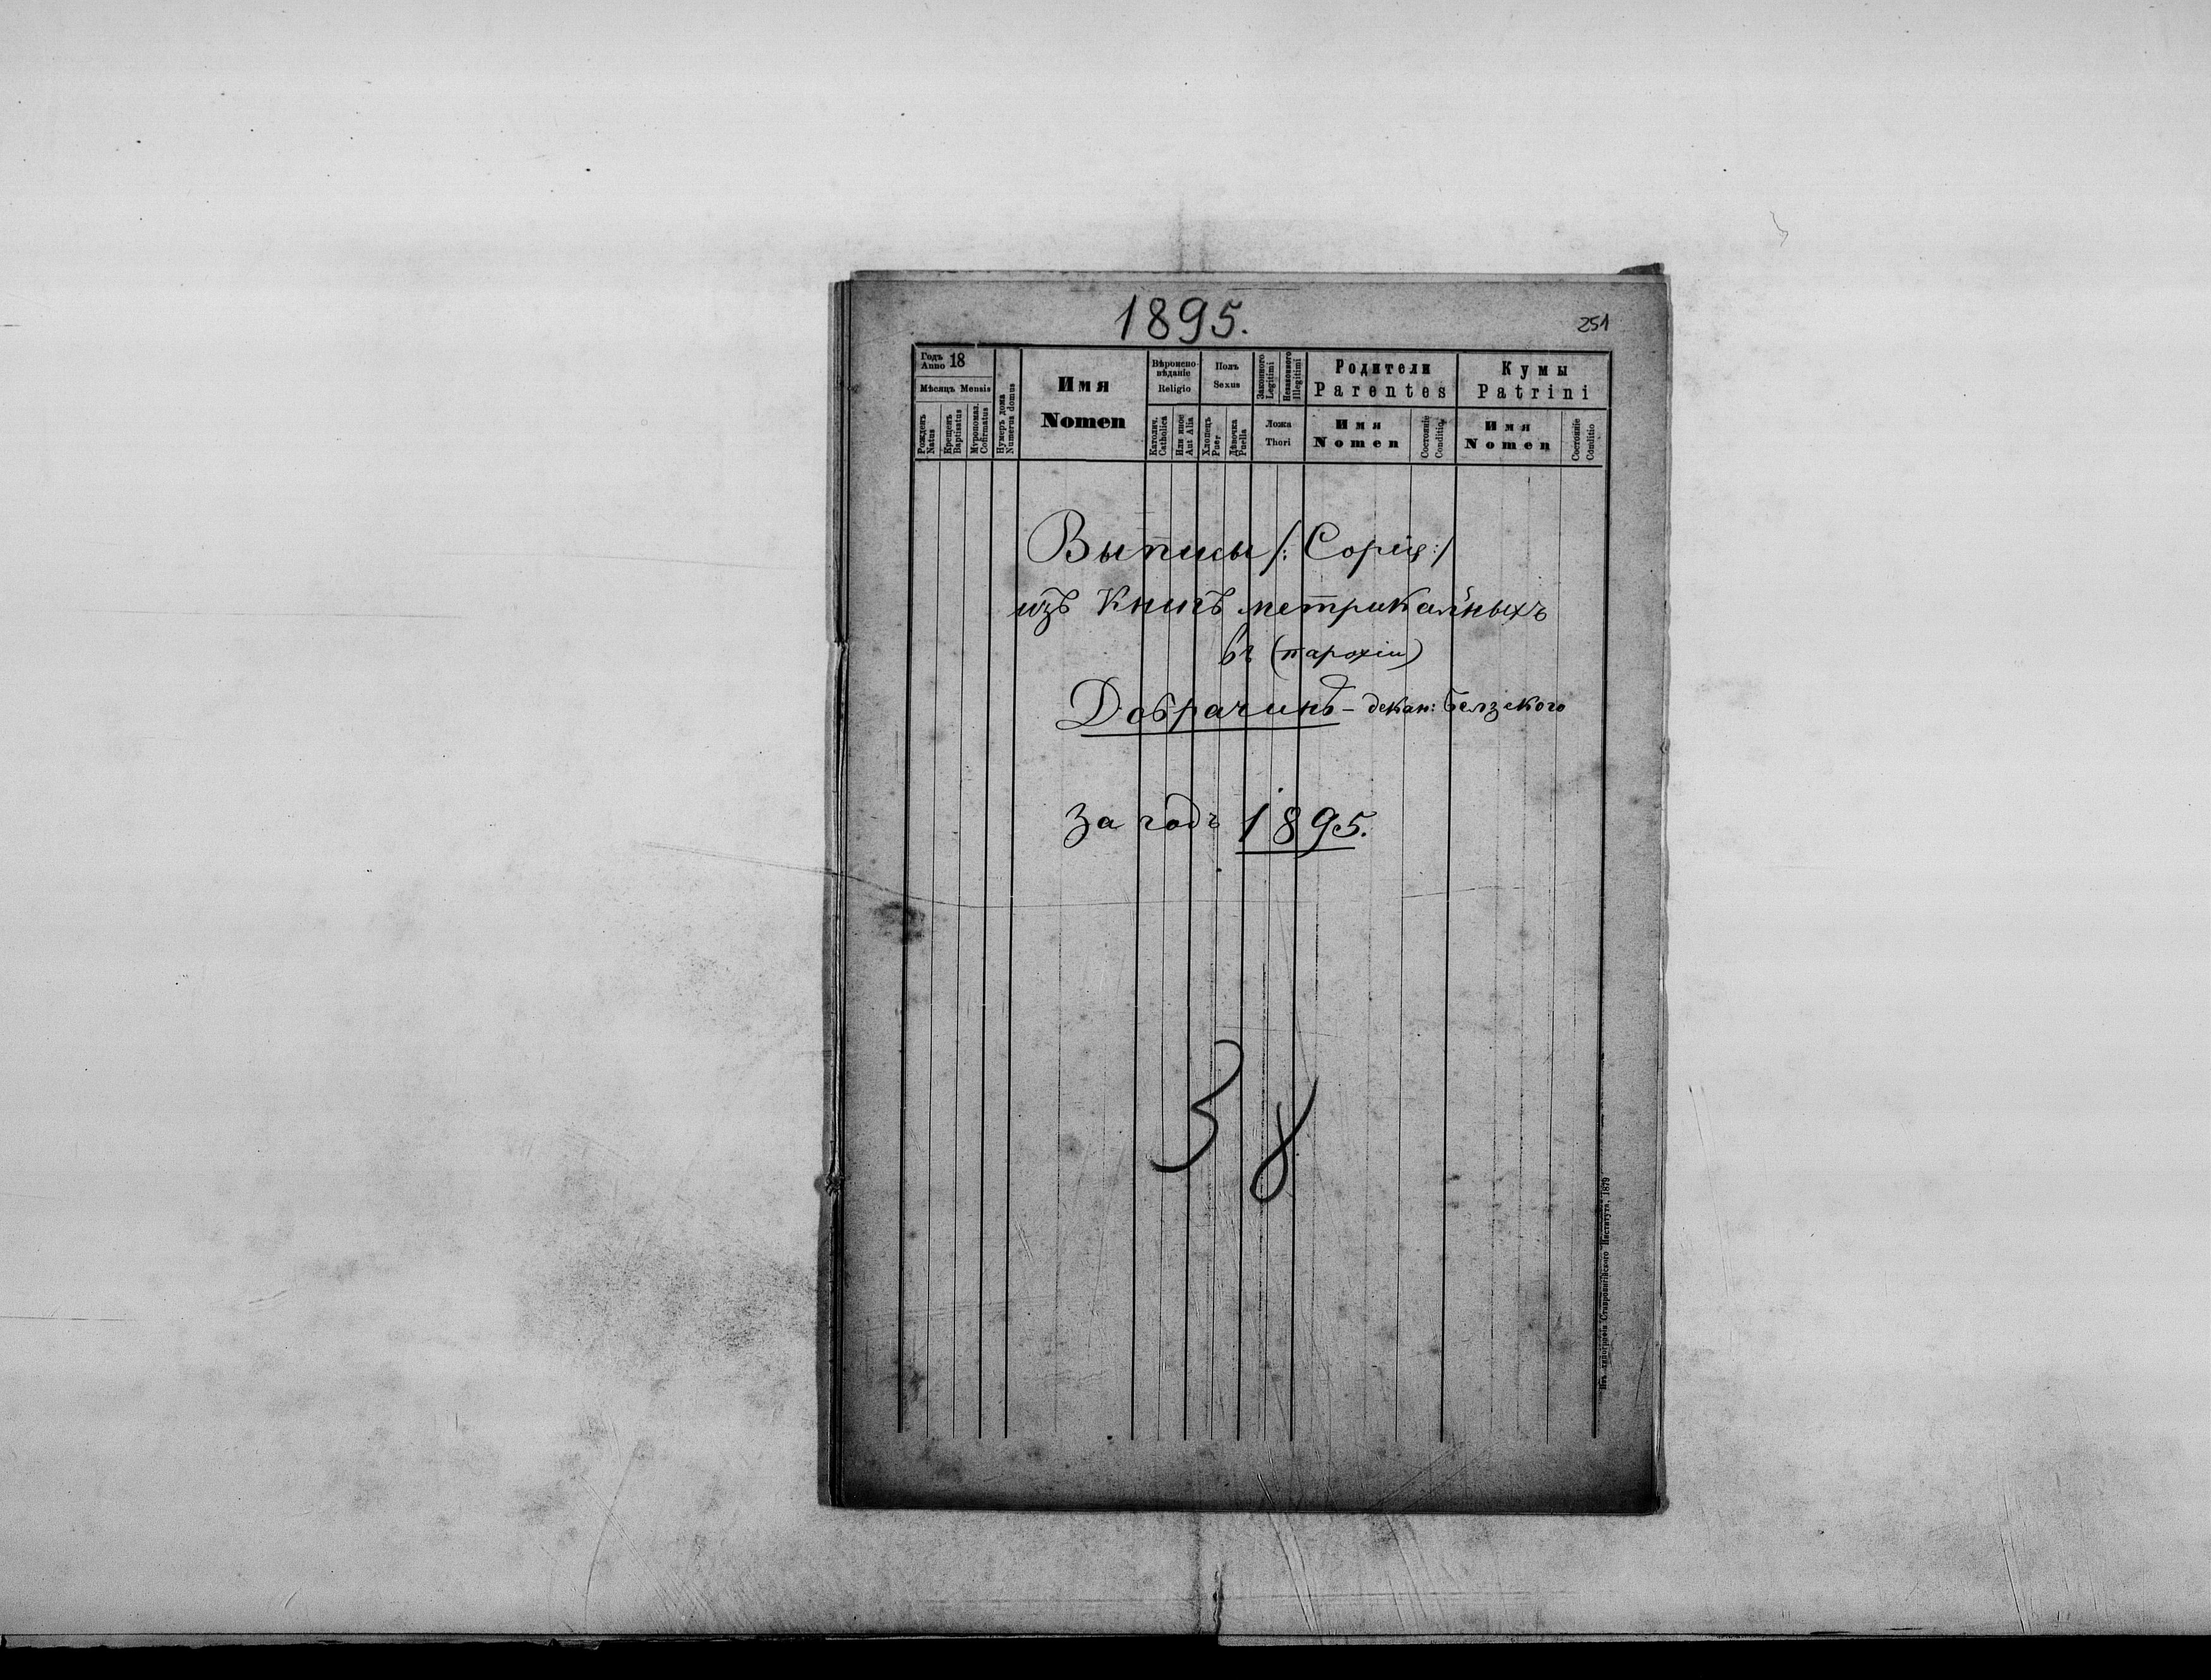 1895.
251
Годъ
Anno 18
Мѣсяцъ Mensis
Рожденъ
Natus
Крещенъ
Baptisatus
Мѵропомаз.
Cofirmatus
Нумеръ дома
Numerus domus
Имя
Nomen
Вѣроиспо-
вѣданіе
Religio
Католич.
Catholica
Или иное
Aut Alia
Полъ
Sexus
Хлопецъ
Puer
Дѣвочка
Puella
Законного
Legitimi
Незаконного
Illegitimi
Ложа
Thori
Родители
Parentes
Имя
Nomen
Состояніе
Conditio
Кумы
Patrini
Имя
Nomen
Состояніе
Conditio
Выписы /: Copiae :/
изъ Книгъ метрикальныхъ
въ (парохіи)
Добрачинъ – декан: Белзского
за годъ 1895.
Изъ типографіи Ставропигійского Института, 1879